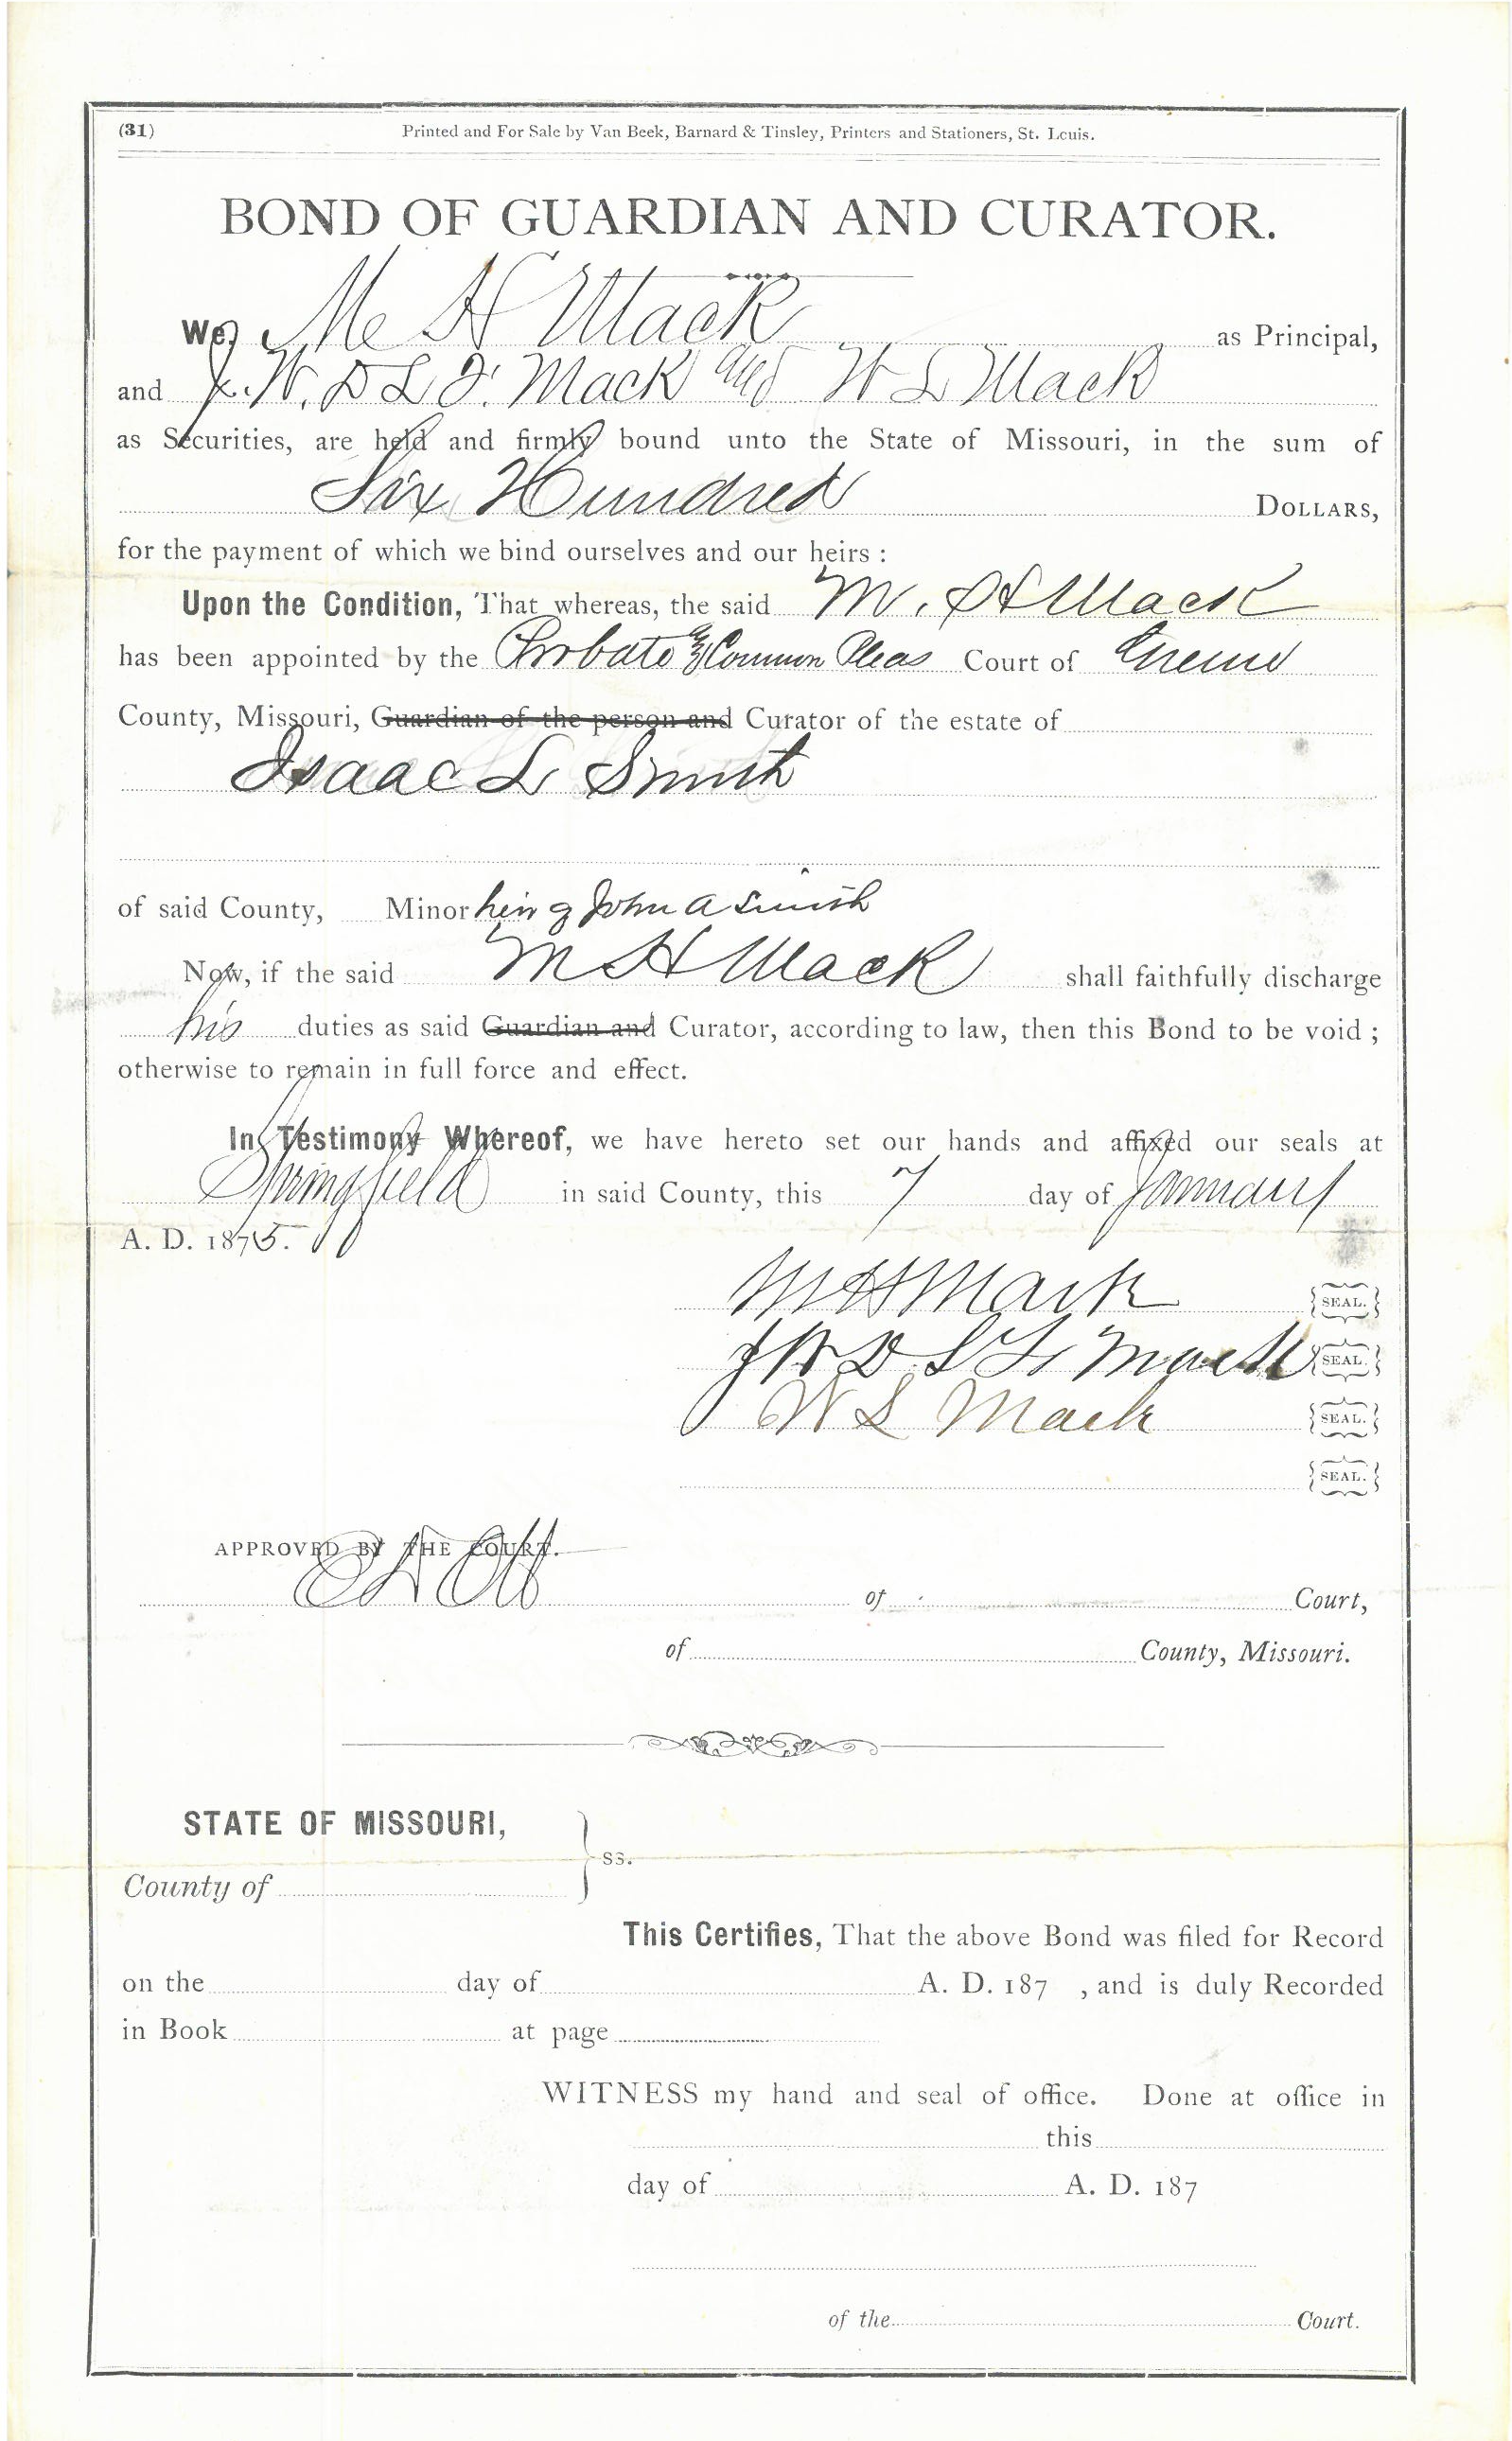 (31) Printed and For Sale by Van Beek, Barnard & Tinsley, Printers and Stationers, St. Louis.
BOND OF GUARDIAN AND CURATOR.
We, M H Mack as Principal,
and J. W. D. L. F. Mack and W L Mack
as Securities, are held and firmly bound unto the State of Missouri, in the sum of
Six Hundred DOLLARS,
for the payment of which we bind ourselves and our heirs :
Upon the Condition, That whereas, the said M. H Mack
has been appointed by the Probate & Common Pleas Court of Greene
County, Missouri, Guardian of the person and Curator of the estate of
Isaac L Smith
of said County, Minor heir of John A Smith
Now, if the said M H Mack shall faithfully discharge
his duties as said Guardian and Curator, according to law, then this Bond to be void ;
otherwise to remain in full force and effect.
In Testimony Whereof, we have hereto set our hands and affixed our seals at
Springfield in said County, this 7 day of January
A. D. 1875.
M H Mack SEAL.
J W D L F Mack SEAL.
W L Mack SEAL.
SEAL.
APPROVED BY THE COURT.
of Court,
of County, Missouri.
STATE OF MISSOURI,
ss.
County of
This Certifies, That the above Bond was filed for Record
on the day of A. D. 187 , and is duly Recorded
in Book at page
WITNESS my hand and seal of office. Done at office in
this
day of A. D. 187
of the Court.